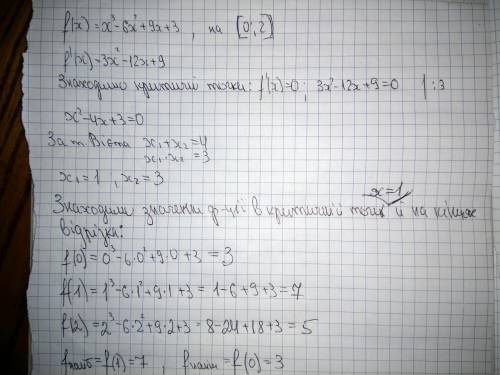 f(x)=x³-6x²+9x+3 , на [0;2]
f'(x)=3x²-12x+9
Знаходимо критичні точки: f'(x)=0; 3x²-12x+9=0 | :3
x²-4x+3=0
За т. Вієта x₁+x₂=4
x₁·x₂=3
x₁=1 ; x₂=3
x=1
Знаходимо значення ф-ції в критичній точці й на кінцях
відрізка:
f(0)=0³-6·0²+9·0+3=3
f(1)=1³-6·1²+9·1+3=1-6+9+3=7
f(2)=2³-6·2²+9·2+3=8-24+18+3=5
fнайб=f(1)=7 , fнайм=f(0)=3